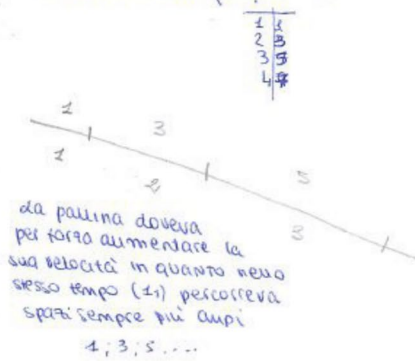 1 1
2 3
3 5
4 7
1 3 5
1 2 3
La pallina doveva
per forza aumentare la
sua velocità in quanto nello
stesso tempo (1s) percorreva
spazi sempre più ampi
1; 3; 5 ....